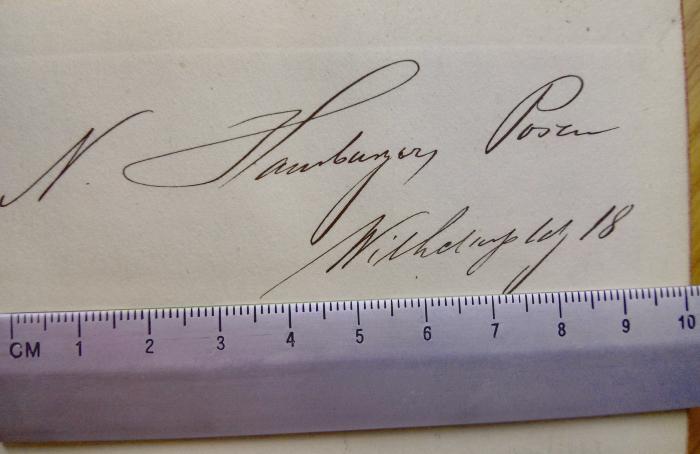 N. Hamburger, Posen
Wilhelmsplatz 18
CM 1 2 3 4 5 6 7 8 9 10